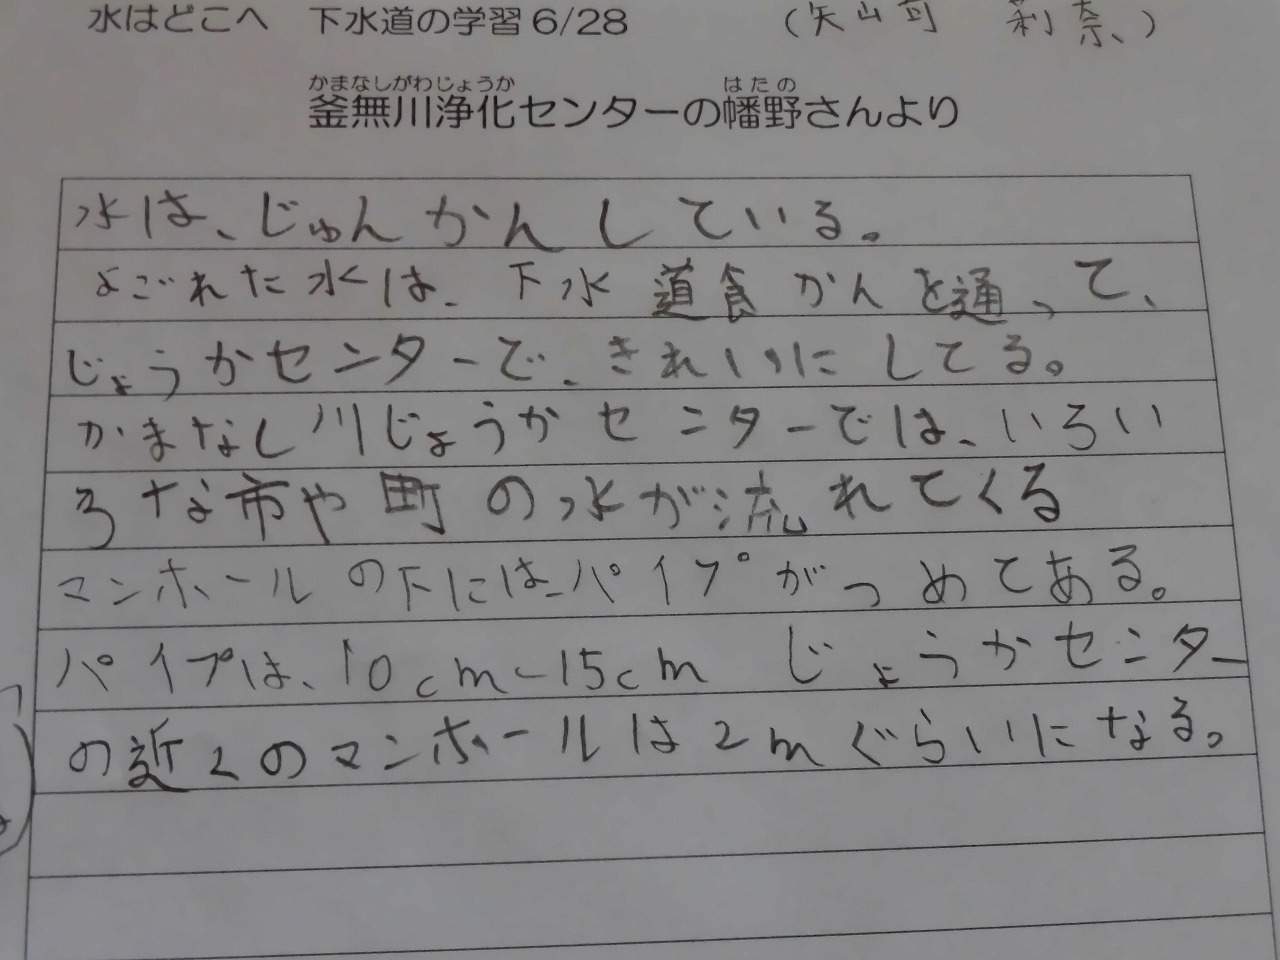 水はどこへ 下水道の学習 6/28
かまなしがわじょうか はたの
釜無川浄化センターの幡野さんより
水は、じゅんかんしている。
よごれた水は、下水道食かんを通って、
じょうかセンターで、きれいにしてる。
かまなし川じょうかセンターでは、いろい
ろな市や町の水が流れてくる
マンホールの下にはパイプがつめてある。
パイプは、10cm~15cm じょうかセンター
の近くのマンホールは2mぐらいになる。